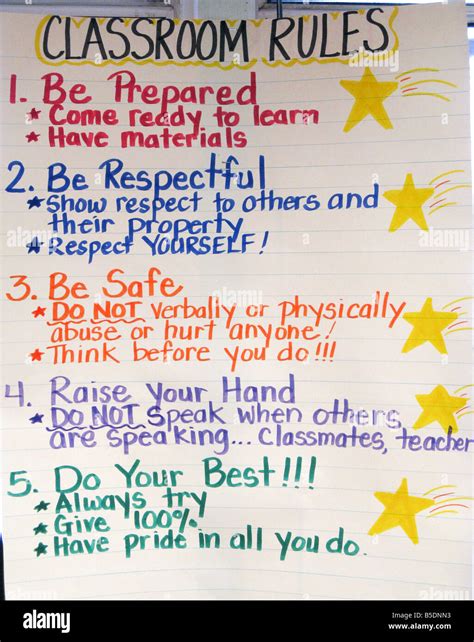 CLASSROOM RULES
1. Be Prepared
★ Come ready to learn
★ Have materials
2. Be Respectful
★ Show respect to others and
their property
★ Respect YOURSELF!
3. Be Safe
★ DO NOT verbally or physically
abuse or hurt anyone!
★ Think before you do!!!
4. Raise Your Hand
★ DO NOT speak when others
are speaking... Classmates, teacher
5. Do Your Best!!!
★ Always try
★ Give 100%
★ Have pride in all you do.
alamy
alamy
alamy
alamy
alamy
alamy
alamy
Image ID: B5DNN3
www.alamy.com